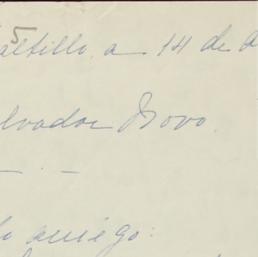 5
altillo a 14 de a
lvador Novo.
do amigo: